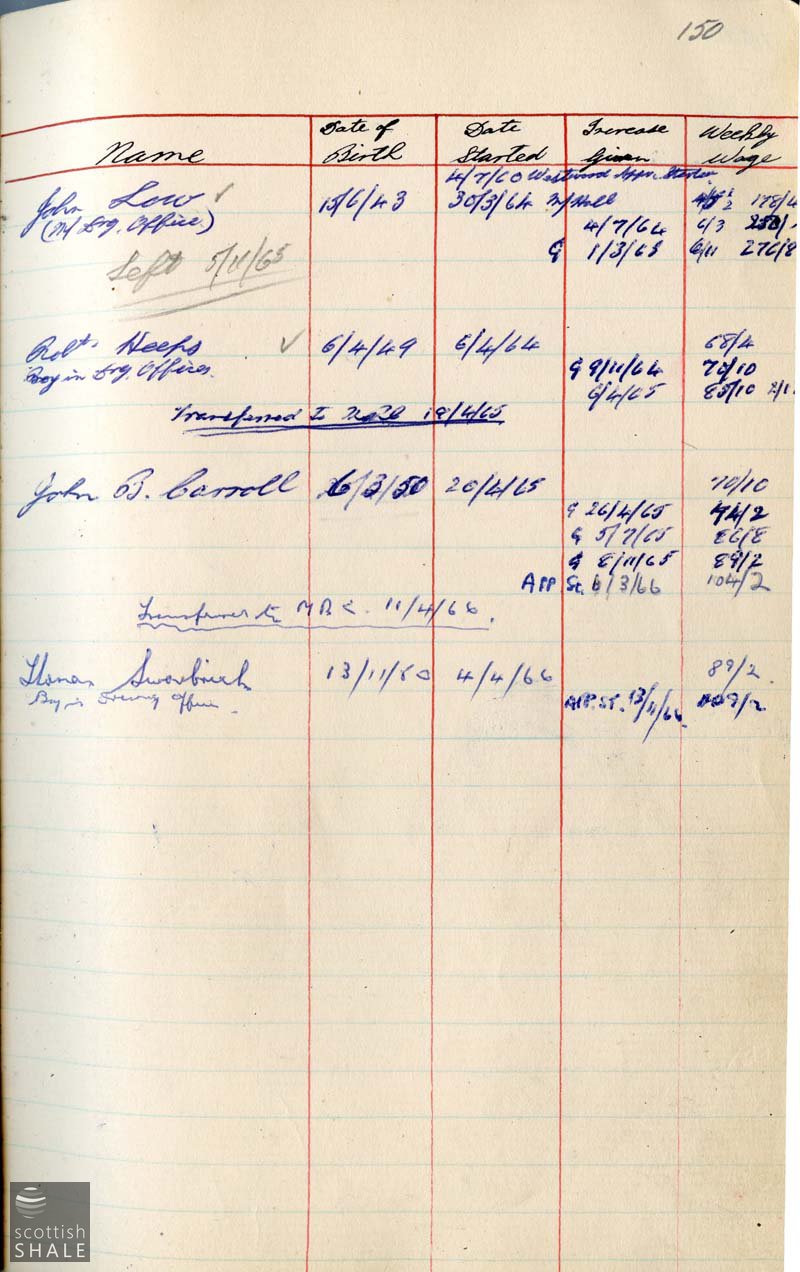 150
Name Date of Birth Date Started Increase Given Weekly Wage
4/7/60 Westwood Appr. Starter
John Low ✓ 15/6/43 30/3/64 M/Hall 178/4
(M/ Drg. Office) 4/7/64 6/3 250/-
G 1/3/65 6/11 276/8
Left 5/11/65
Robt. Heeps ✓ 6/4/49 6/4/64 68/4
Boy in Drg. Offices. G 9/11/64 70/10
6/4/65 85/10
Transferred to 19/4/65
John B. Carroll 6/3/50 20/4/65 70/10
G 26/4/65 74/2
G 5/7/65 86/8
G 8/11/65 89/2
APP St. 6/3/66 104/2
Transferred to 11/4/66.
Swarbrick 13/11/50 4/4/66 89/2.
Boy in Drawing Office. APP. ST. 13/4/66. 109/2
scottish
SHALE